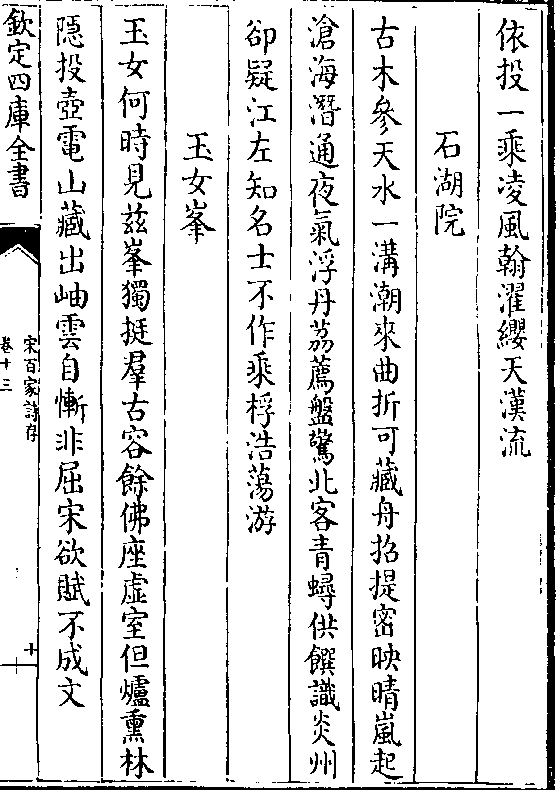 依投一乘凌風翰濯纓天漢流
石湖院
古木參天水一溝潮來曲折可藏舟招提密映晴嵐起
滄海潛通夜氣浮丹荔薦盤驚北客青蟳供饌識炎州
卻疑江左知名士不作乘桴浩蕩游
玉女峯
玉女何時見兹峯獨挺羣古容餘佛座虚室但爐熏林
隱投壺電山藏出岫雲自慚非屈宋欲賦不成文
欽定四庫全書
宋百家詩存
卷十三
十